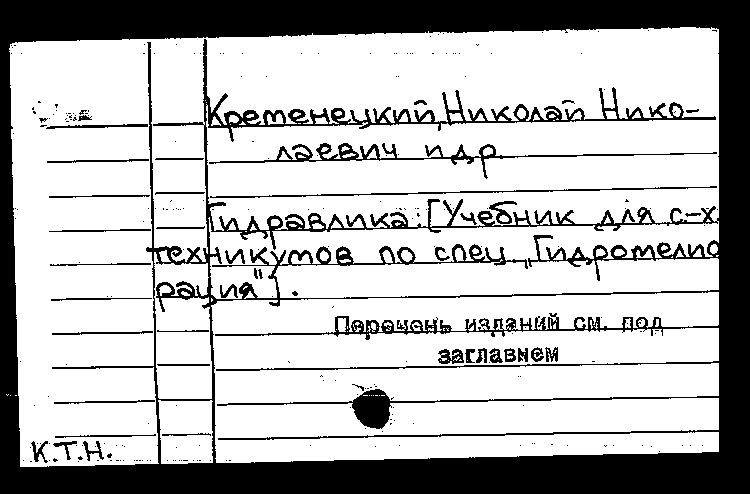 Кременецкий, Николай Нико-
лаевич и др.
Гидравлика: [Учебник для с-х.
техникумов по спец. „Гидромелио
рация"].
Перечень изданий см. под
заглавием
К.Т.Н.